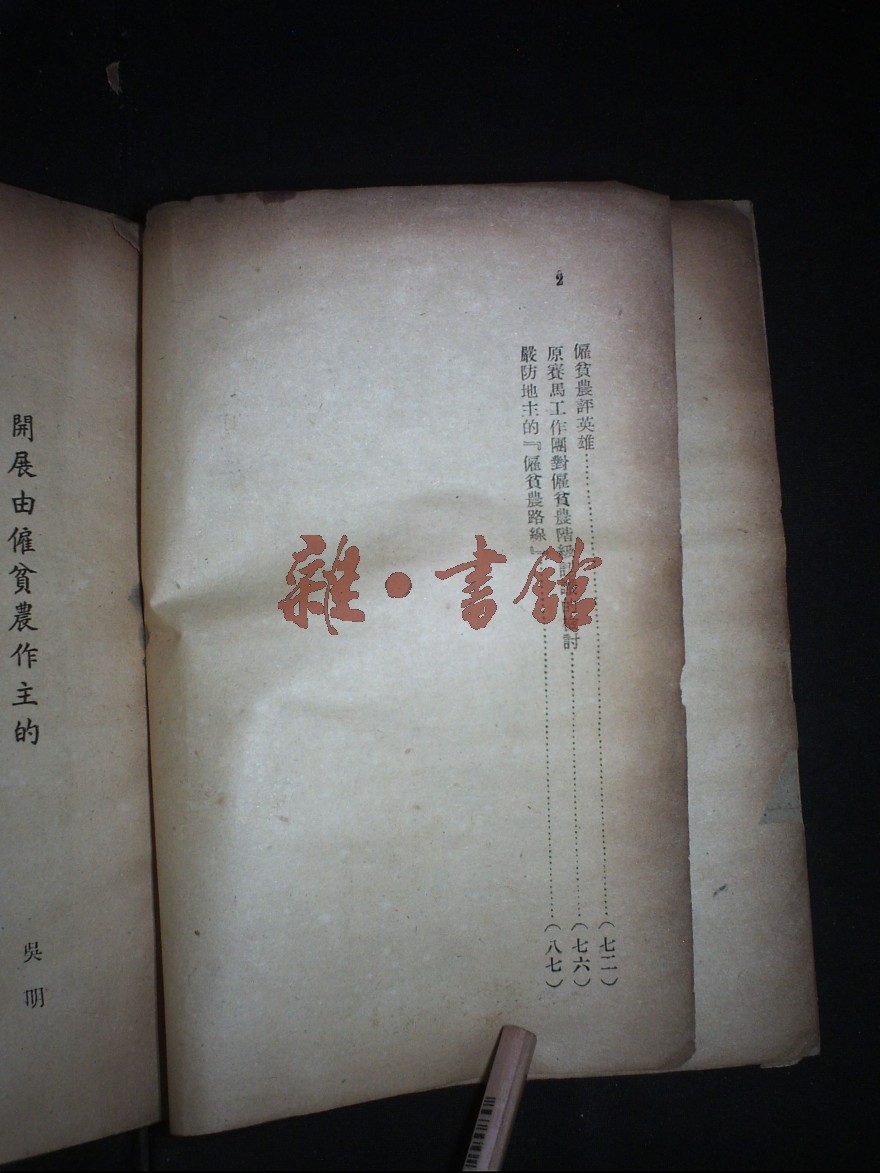 2
僱貧農評英雄……(七二)
原賽馬工作團對僱貧農階級 討……(七六)
嚴防地主的『僱貧農路線』……(八七)
開展由僱貧農作主的
吳明
雜·書館